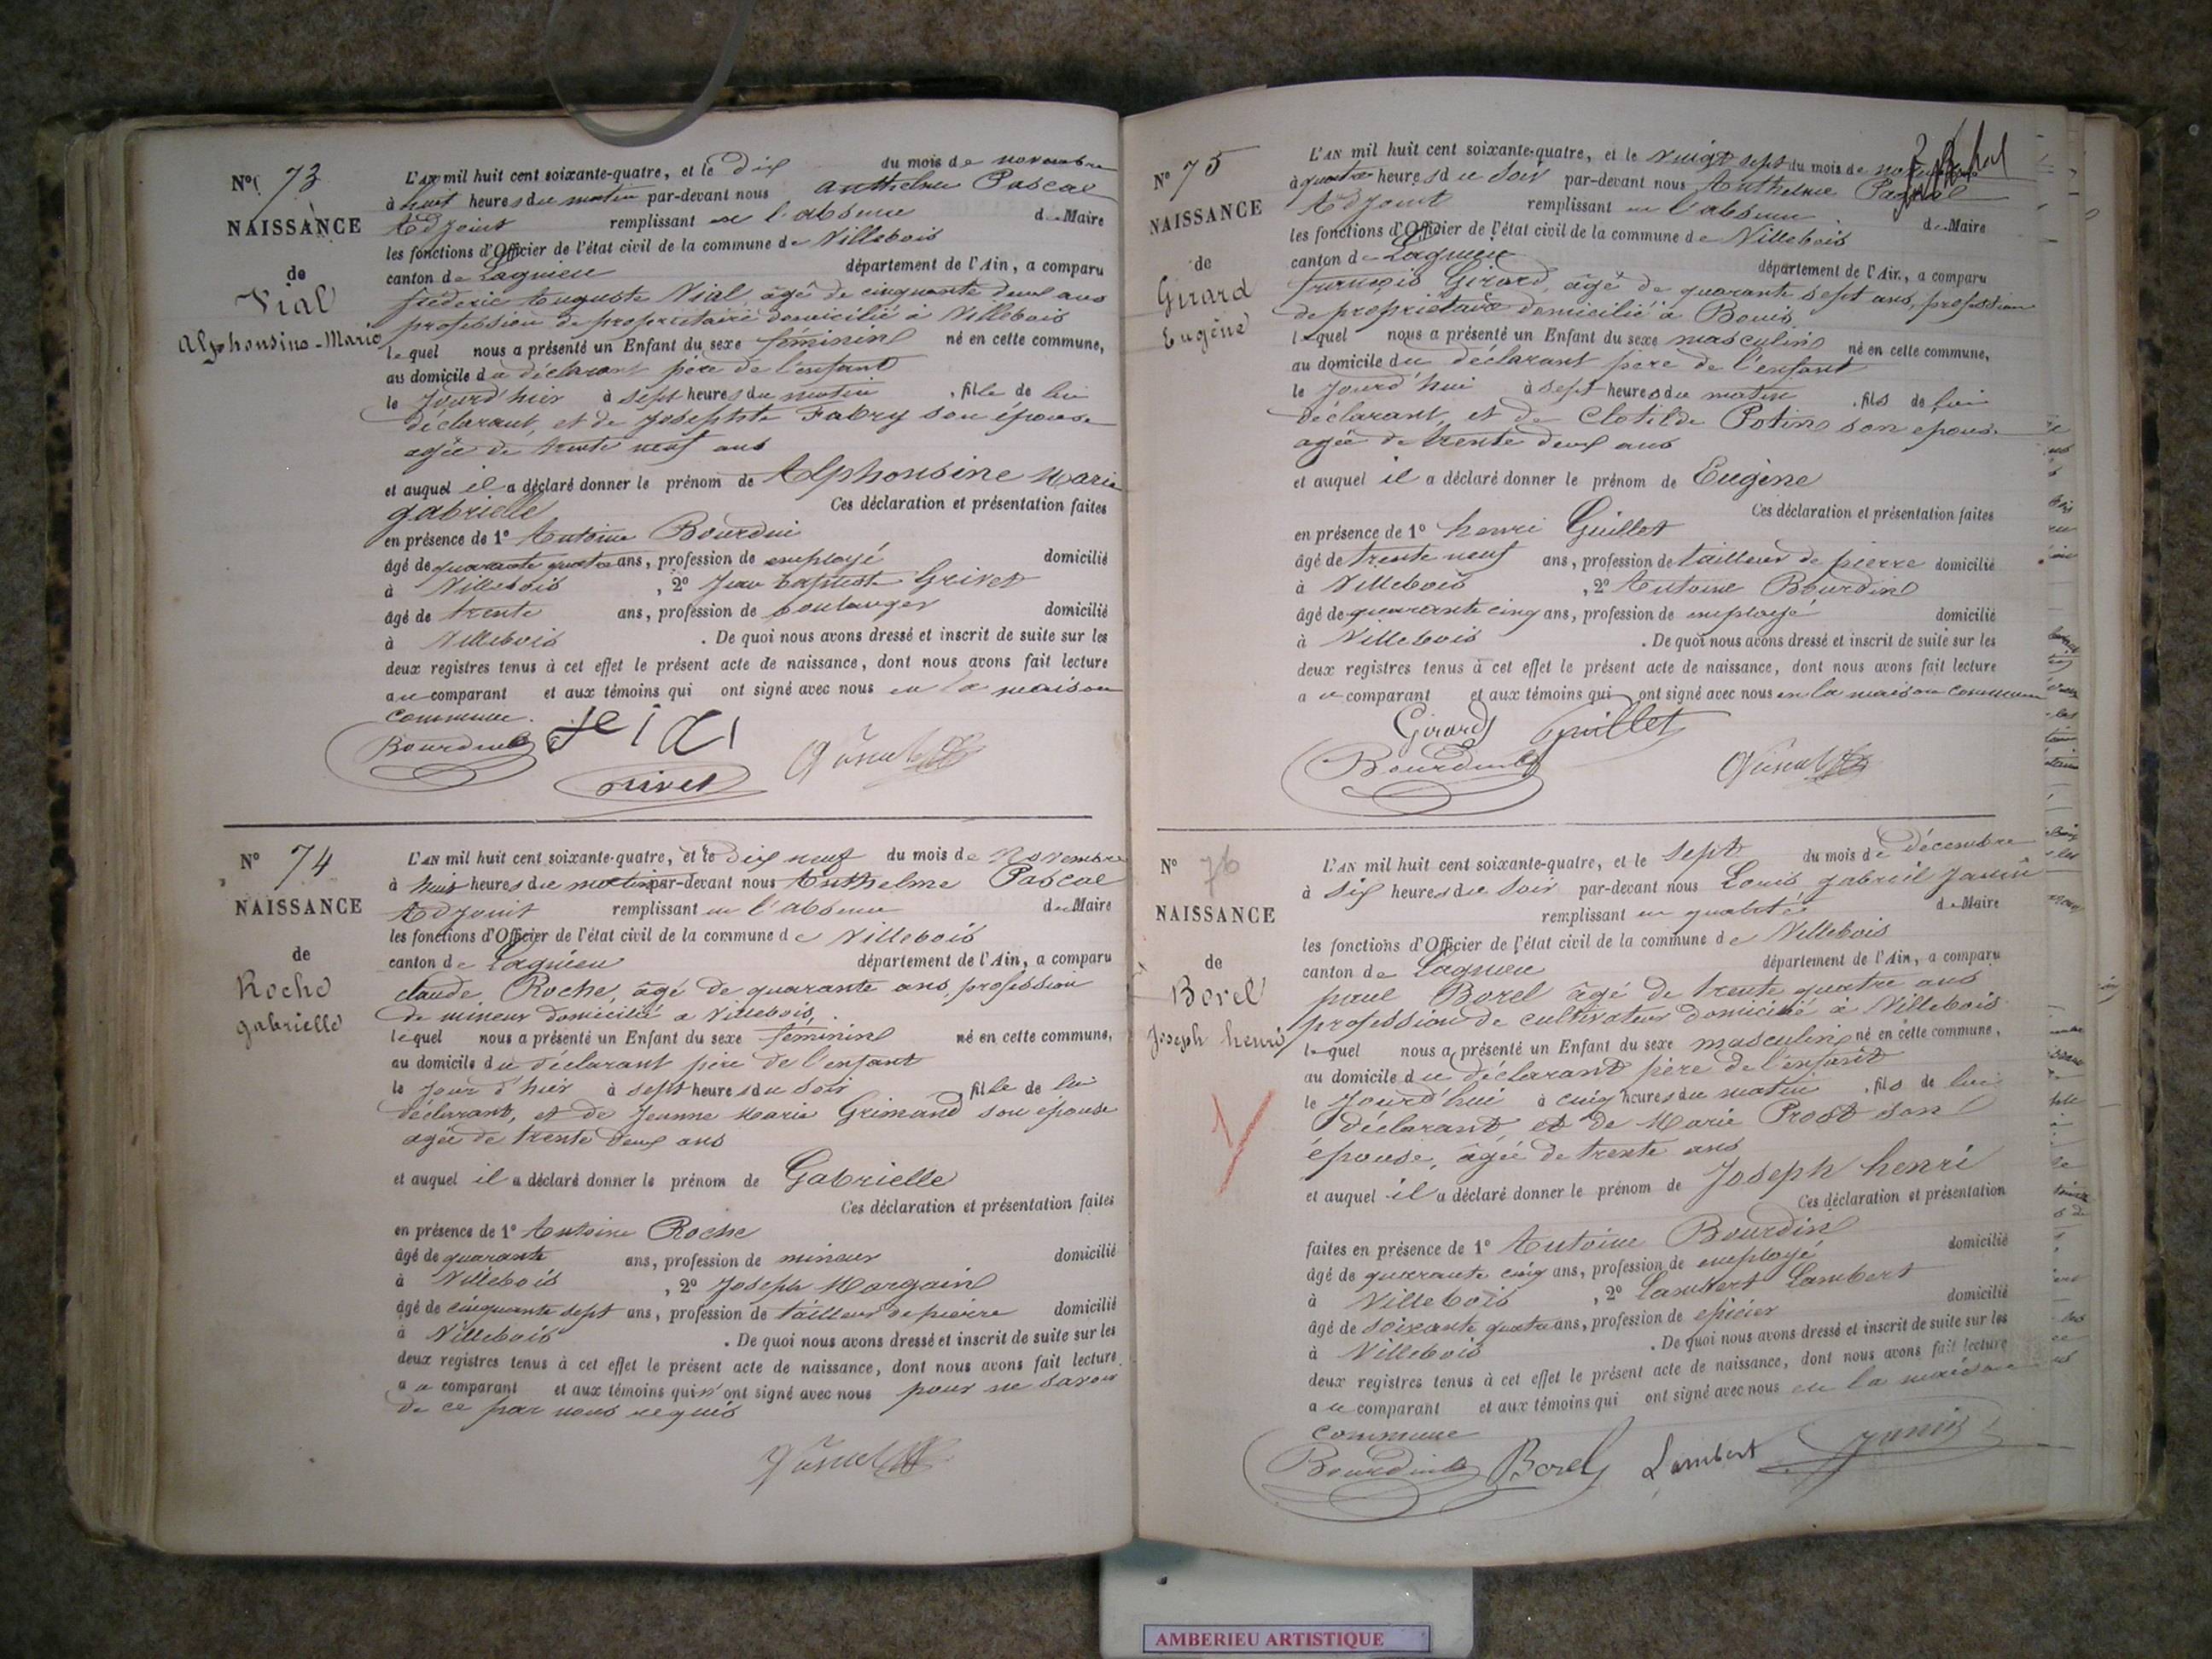 N° 73
NAISSANCE
de
Vial
Alphonsine-Marie
L'AN mil huit cent soixante-quatre, et le dix du mois de novembre
à huit heures du matin par-devant nous Anthelme Pascal
Adjoint remplissant en l'absence du Maire
les fonctions d'Officier de l'état civil de la commune de Villebois
canton de Lagnieu département de l'Ain, a comparu
fréderic Auguste Vial, âgé de cinquante deux ans
profession de propriétaire domicilié à Villebois
lequel nous a présenté un Enfant du sexe féminin né en cette commune,
au domicile du déclarant père de l'enfant
le jourd'hier à sept heures du matin, fille de lui
déclarant, et de Josephte Fabry son épouse
agée de trente neuf ans
et auquel il a déclaré donner le prénom de Alphonsine Marie
gabrielle Ces déclaration et présentation faites
en présence de 1° Antoine Bourdin
âgé de quarante quatre ans, profession de employé domicilié
à Villebois, 2° Jean Baptiste Grivet
âgé de trente ans, profession de boulanger domicilié
à Villebois. De quoi nous avons dressé et inscrit de suite sur les
deux registres tenus à cet effet le présent acte de naissance, dont nous avons fait lecture
au comparant et aux témoins qui ont signé avec nous en la maison
commune.
Bourdin
Grivet
N° 74
NAISSANCE
de
Roche
gabrielle
L'AN mil huit cent soixante-quatre, et le dix neuf du mois de Novembre
à huit heures du matin par-devant nous Anthelme Pascal
Adjoint remplissant en l'absence du Maire
les fonctions d'Officier de l'état civil de la commune de Villebois
canton de Lagnieu département de l'Ain, a comparu
claude Roche, âgé de quarante ans, profession
de mineur domicilié a Villebois,
lequel nous a présenté un Enfant du sexe féminin né en cette commune,
au domicile du déclarant père de l'enfant
le jour d'hier à sept heures du soir, fille de lui
déclarant, et de Jeanne Marie Grimand son épouse
agée de trente deux ans
et auquel il a déclaré donner le prénom de Gabrielle
Ces déclaration et présentation faites
en présence de 1° Antoine Roche
âgé de quarante ans, profession de mineur domicilié
à Villebois, 2° Joseph Margain
âgé de cinquante sept ans, profession de tailleur de pierre domicilié
à Villebois. De quoi nous avons dressé et inscrit de suite sur les
deux registres tenus à cet effet le présent acte de naissance, dont nous avons fait lecture
au comparant et aux témoins qui n'ont signé avec nous pour ne savoir
de ce par nous requis
N° 75
NAISSANCE
de
Girard
Eugène
L'AN mil huit cent soixante-quatre, et le vingt sept du mois de novembre
à quatre heures du soir par-devant nous Anthelme Pascal
Adjoint remplissant en l'absence du Maire
les fonctions d'Officier de l'état civil de la commune de Villebois
canton de Lagnieu département de l'Ain, a comparu
françois Girard, âgé de quarante sept ans, profession
de propriétaire domicilié à Bouis
lequel nous a présenté un Enfant du sexe masculin né en cette commune,
au domicile du déclarant père de l'enfant
le jourd'hui à sept heures du matin, fils de lui
déclarant, et de Clotilde Potin son épouse
agée de trente deux ans
et auquel il a déclaré donner le prénom de Eugène
Ces déclaration et présentation faites
en présence de 1° henri Guillet
âgé de trente neuf ans, profession de tailleur de pierre domicilié
à Villebois, 2° Antoine Bourdin
âgé de quarante cinq ans, profession de employé domicilié
à Villebois. De quoi nous avons dressé et inscrit de suite sur les
deux registres tenus à cet effet le présent acte de naissance, dont nous avons fait lecture
au comparant et aux témoins qui ont signé avec nous en la maison commune
Girard Guillet
Bourdin
N° 76
NAISSANCE
de
Borel
Joseph henri
L'AN mil huit cent soixante-quatre, et le sept du mois de décembre
à six heures du soir par-devant nous Louis gabriel Janin
remplissant en qualité de Maire
les fonctions d'Officier de l'état civil de la commune de Villebois
canton de Lagnieu département de l'Ain, a comparu
paul Borel âgé de trente quatre ans
profession de cultivateur domicilié à Villebois
lequel nous a présenté un Enfant du sexe masculin né en cette commune,
au domicile du déclarant père de l'enfant
le jourd'hui à cinq heures du matin, fils de lui
déclarant, et de Marie Prost son
épouse, âgée de trente ans
et auquel il a déclaré donner le prénom de Joseph henri
Ces déclaration et présentation
faites en présence de 1° Antoine Bourdin
âgé de quarante cinq ans, profession de employé domicilié
à Villebois, 2° Lambert Lambert
âgé de soixante quatre ans, profession de épicier domicilié
à Villebois. De quoi nous avons dressé et inscrit de suite sur les
deux registres tenus à cet effet le présent acte de naissance, dont nous avons fait lecture
au comparant et aux témoins qui ont signé avec nous en la maison
commune
Bourdin Borel Lambert Janin
AMBERIEU ARTISTIQUE